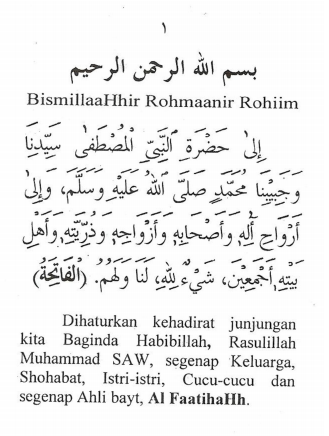 ١
بسم الله الرحمن الرحيم
BismillaaHhir Rohmaanir Rohiim
إِلَى حَضْرَةِ النَّبِيِّ الْمُصْطَفَى سَيِّدِنَا
وَحَبِيْبِنَا مُحَمَّدٍ صَلَّى اللهُ عَلَيْهِ وَسَلَّمَ، وَإِلَى
أَرْوَاحِ آلِهِ، وَأَصْحَابِهِ وَأَزْوَاجِهِ وَذُرِّيَّتِهِ وَأَهْلِ
بَيْتِهِ أَجْمَعِيْنَ، شَيْءٌ لِلهِ، لَنَا وَلَهُمْ. (الْفَاتِحَةُ)
Dihaturkan kehadirat junjungan
kita Baginda Habibillah, Rasulillah
Muhammad SAW, segenap Keluarga,
Shohabat, Istri-istri, Cucu-cucu dan
segenap Ahli bayt, Al FaatihaHh.